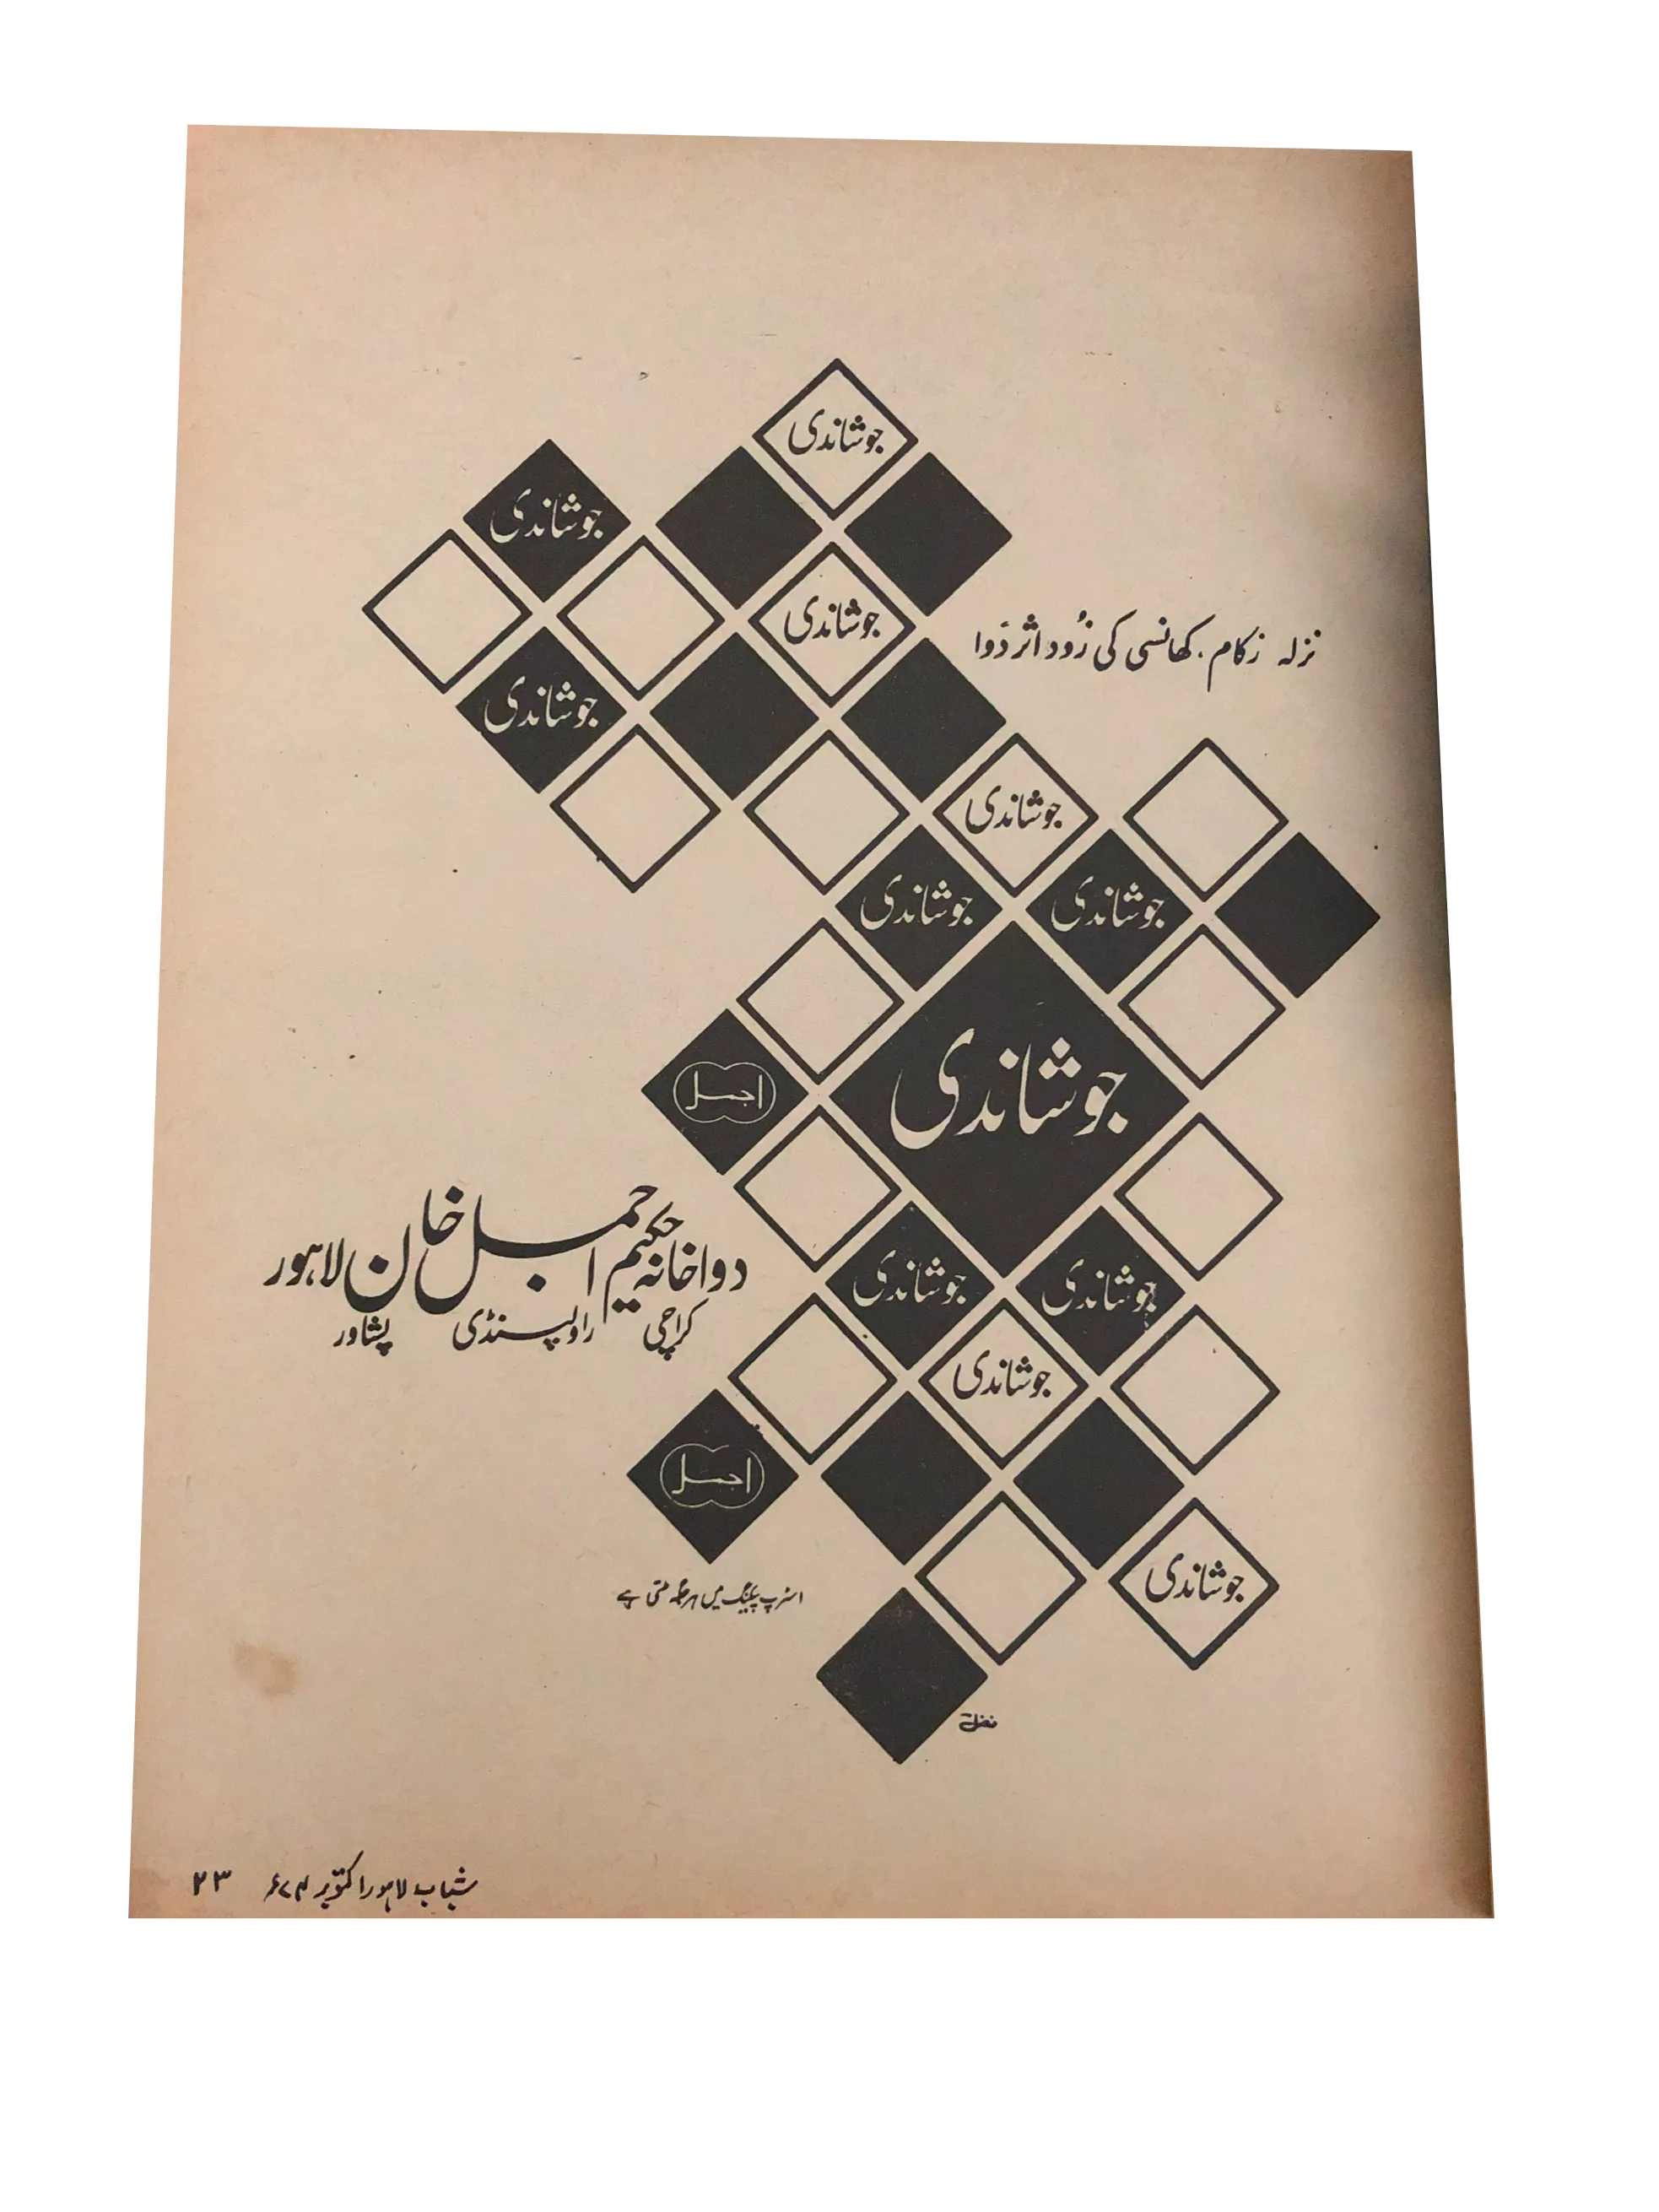 جوشاندی
جوشاندی
جوشاندی
نزلہ زکام۔ کھانسی کی زُود اثر دَوا
جوشاندی
جوشاندی
جوشاندی
جوشاندی
جوشاندی
اجمل
دواخانہ حکیم اجمل خان لاہور
کراچی راولپنڈی پشاور
جوشاندی
جوشاندی
جوشاندی
اجمل
جوشاندی
اسٹرپ پیکنگ میں ہر جگہ ملتی ہے
شباب لاہور اکتوبر ۷۴ء ۲۳